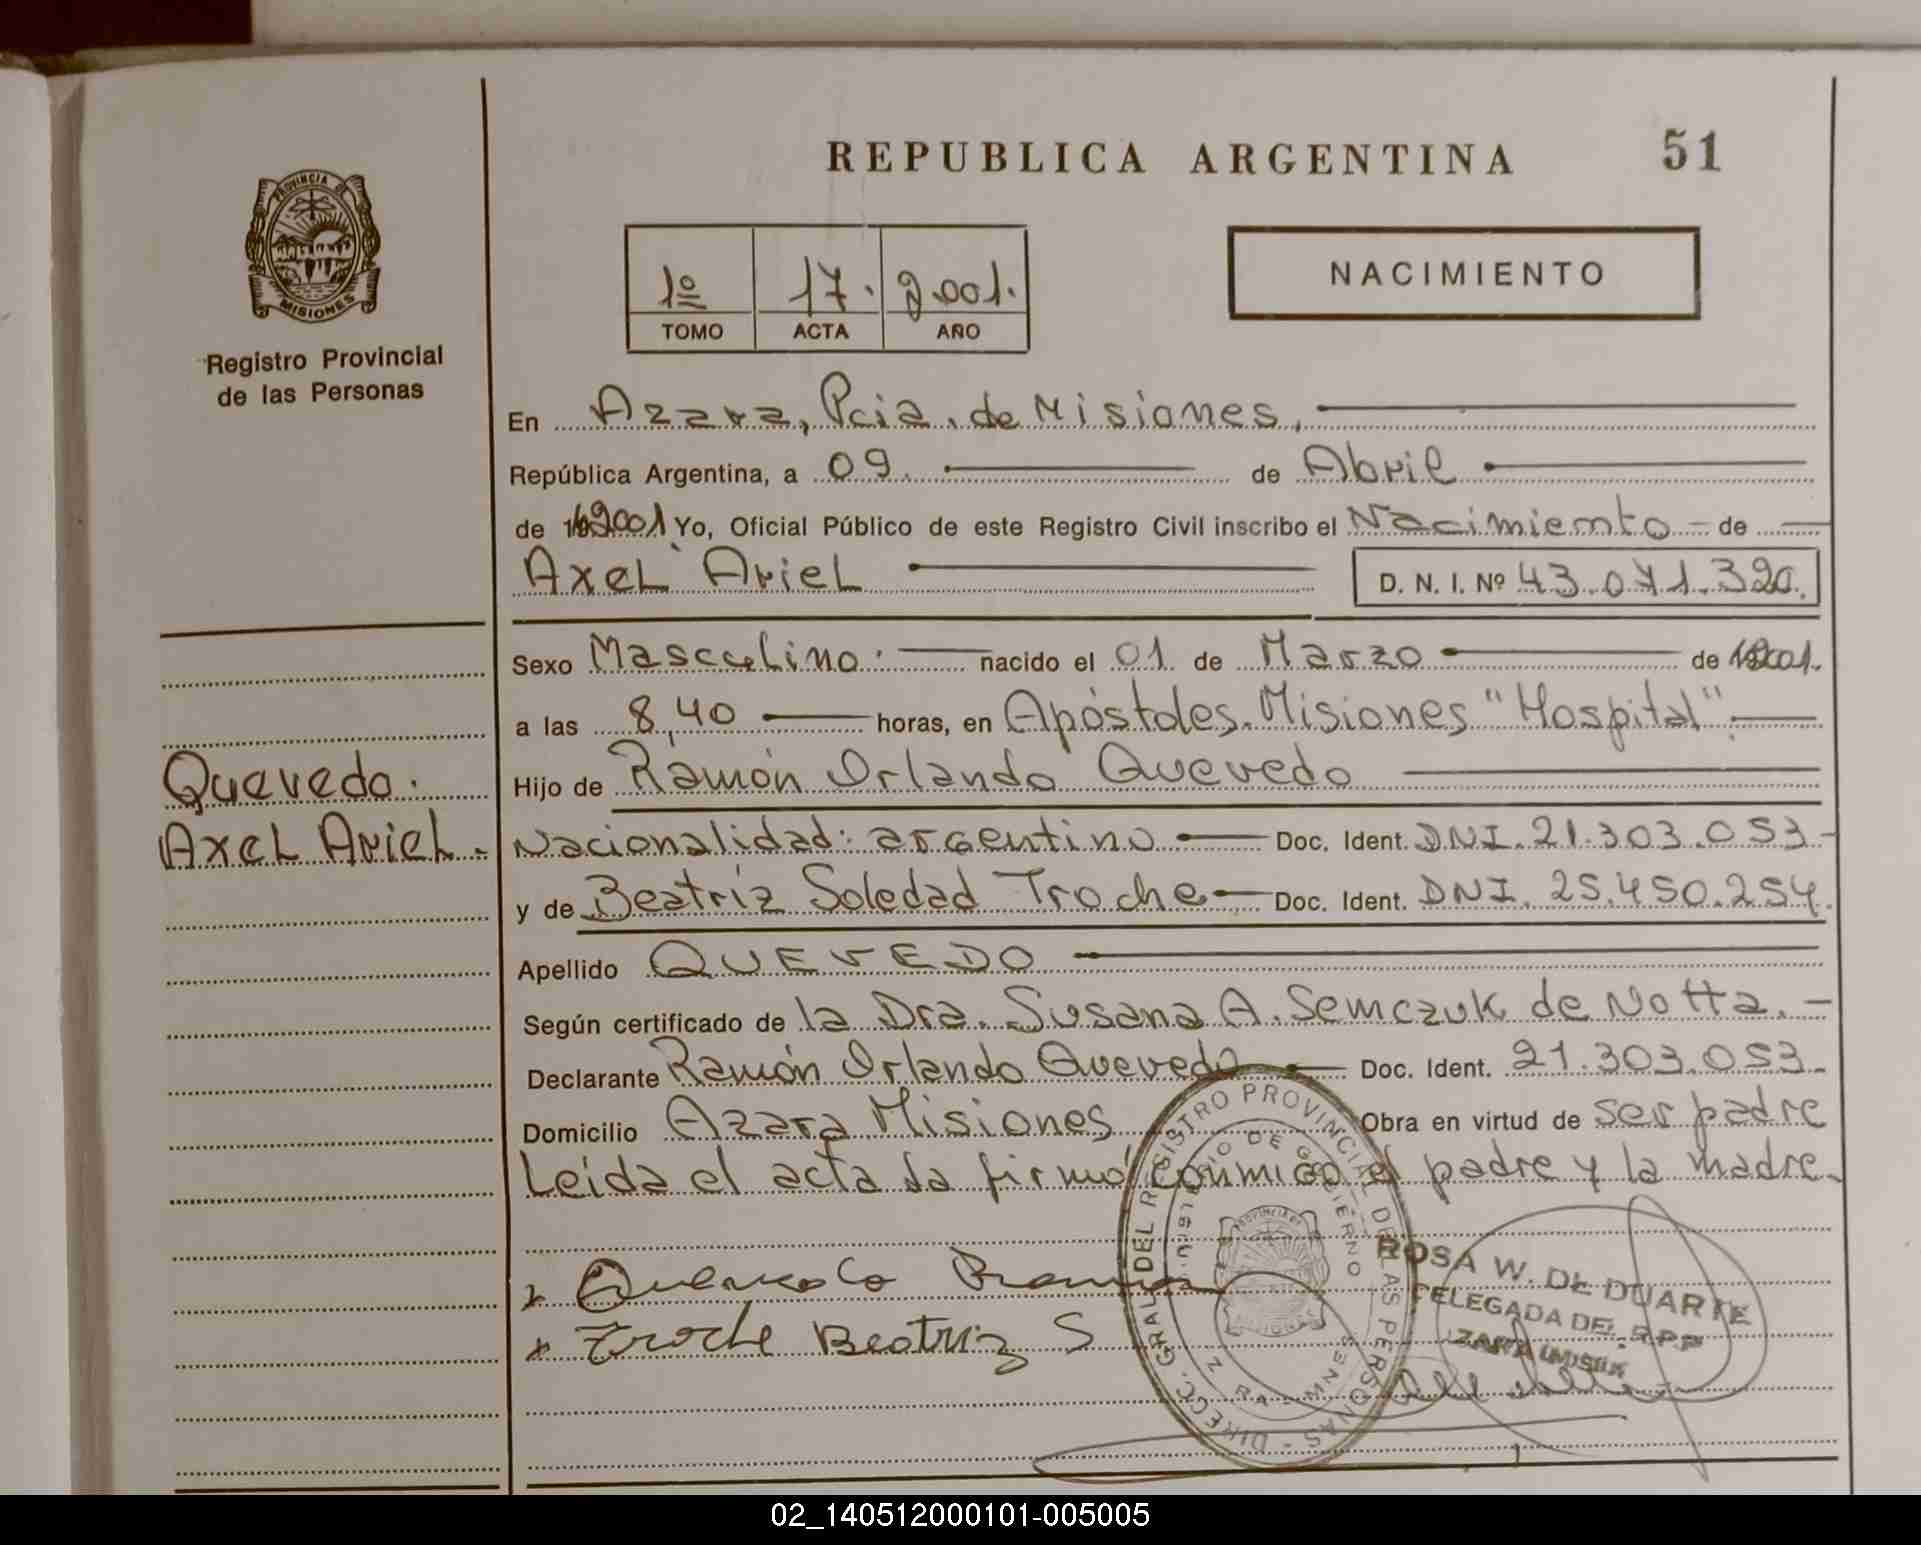 REPUBLICA ARGENTINA
51
PROVINCIA DE
MISIONES
Registro Provincial
de las Personas
1º 17. 2.001.
TOMO ACTA AÑO
NACIMIENTO
En Azara, Pcia. de Misiones,
República Argentina, a 09. de Abril
de 2001 Yo, Oficial Público de este Registro Civil inscribo el Nacimiento - de
Axel Ariel D. N. I. Nº 43.071.320.
Sexo Masculino. nacido el 01 de Marzo de 2001.
a las 8,40 horas, en Apóstoles. Misiones "Hospital".
Hijo de Ramón Orlando Quevedo
Nacionalidad: argentino Doc. Ident. DNI. 21.303.053-
y de Beatríz Soledad Troche Doc. Ident. DNI. 25.450.254.
Apellido QUEVEDO
Según certificado de la Dra. Susana A. Semczuk de Notta. -
Declarante Ramón Orlando Quevedo Doc. Ident. 21.303.053.
Domicilio Azara Misiones Obra en virtud de ser padre
Leída el acta la firmó conmigo el padre y la madre.
Quevedo.
Axel Ariel.
Quevedo Ramon
Troche Beatriz S
DIRECC. GRAL DEL REGISTRO PROVINCIAL DE LAS PERSONAS
ROSA W. DE DUARTE
DELEGADA DEL R.P.P
02_140512000101-005005